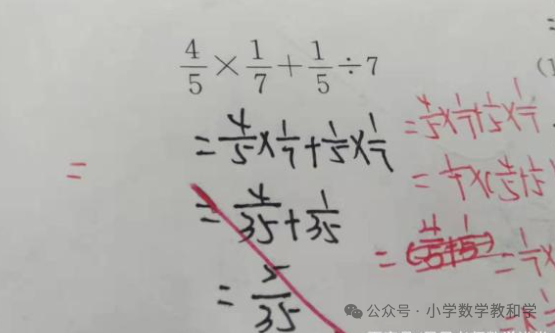 4/5 × 1/7 + 1/5 ÷ 7
= 4/5 × 1/7 + 1/5 × 1/7
= 4/35 + 1/35
= 5/35
=
= 4/5 × 1/7 + 1/5 × 1/7
= 1/7 × (4/5 + 1/5
= (4/5 + 1/5) = 1/7 ×
公众号 · 小学数学教和学